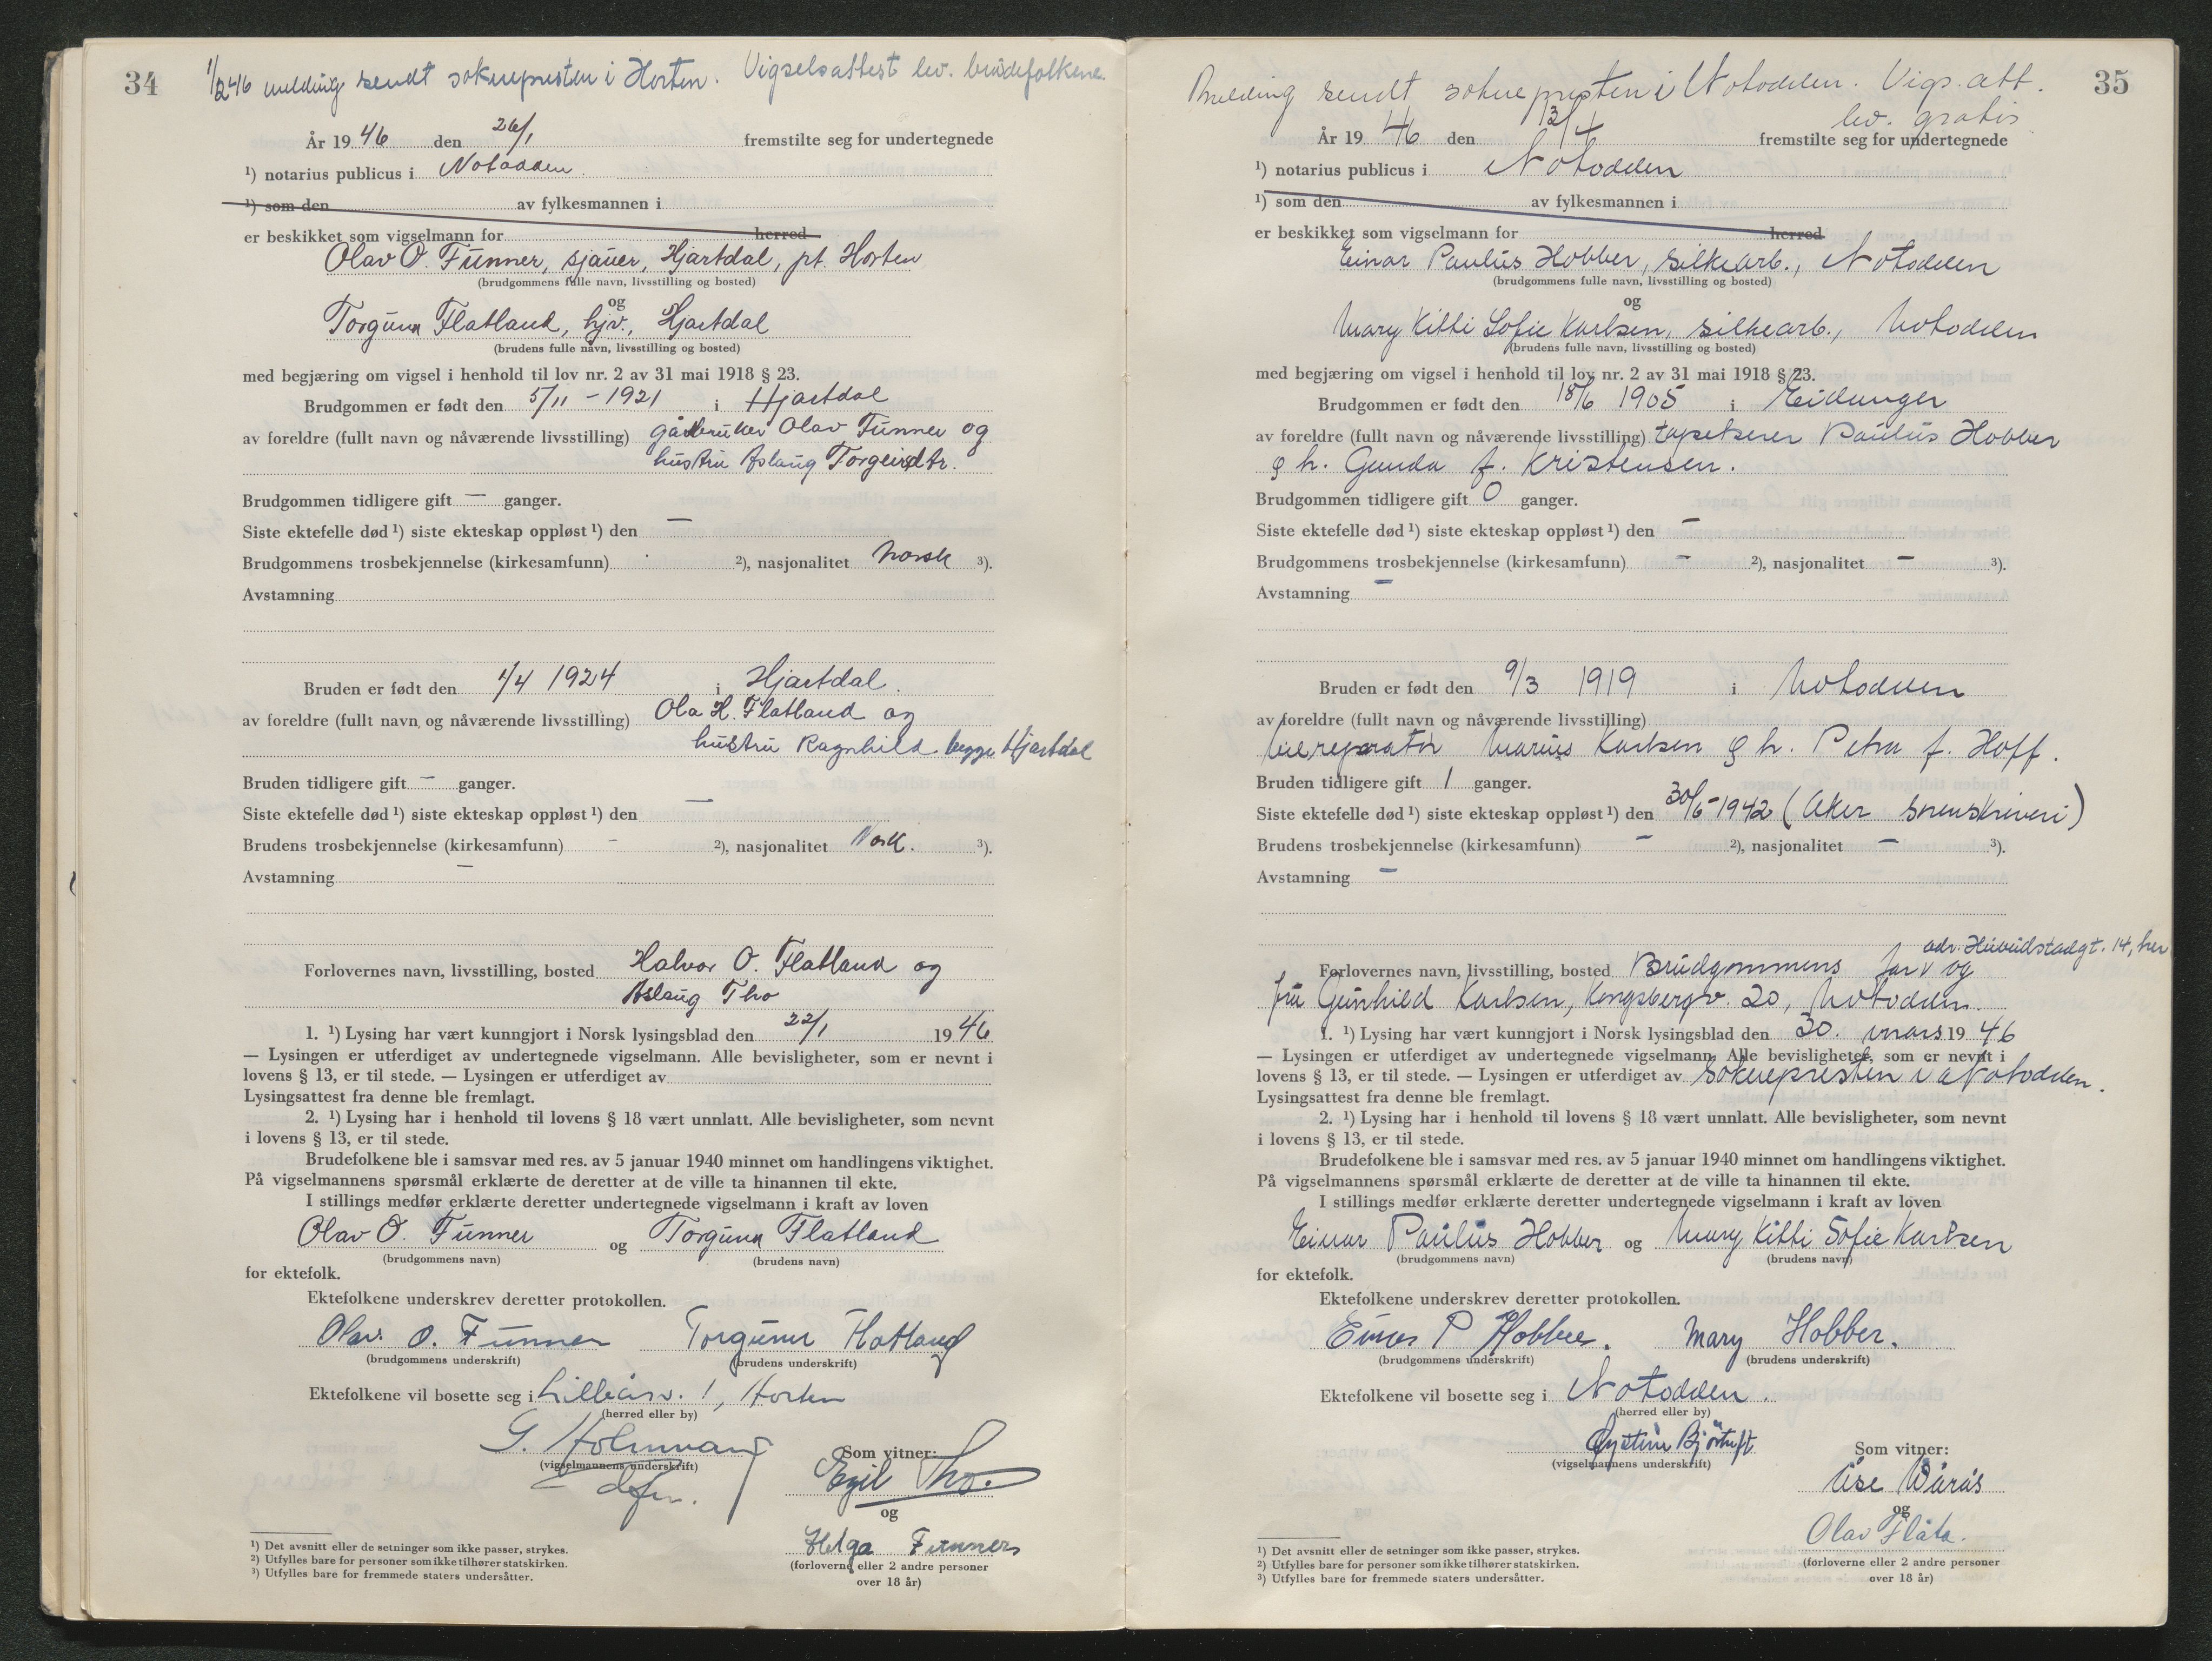 34
1/2 46 melding sendt soknepresten i Horten. Vigselsattest lev. brudefolkene.
År 19 46 den 26/1 fremstilte seg for undertegnede
¹) notarius publicus i Notodden
¹) som den av fylkesmannen i
er beskikket som vigselmann for herred
Olav O. Funner, sjauer, Hjartdal, pt. Horten
(brudgommens fulle navn, livsstilling og bosted)
og
Torgunn Flatland, hjv., Hjartdal
(brudens fulle navn, livsstilling og bosted)
med begjæring om vigsel i henhold til lov nr. 2 av 31 mai 1918 § 23.
Brudgommen er født den 5/11 - 1921 i Hjartdal
av foreldre (fullt navn og nåværende livsstilling) gårdbruker Olav Funner og
hustru Aslaug Torgeirsdtr.
Brudgommen tidligere gift — ganger.
Siste ektefelle død ¹) siste ekteskap oppløst ¹) den —
Brudgommens trosbekjennelse (kirkesamfunn) ²), nasjonalitet Norsk ³).
Avstamning
Bruden er født den 1/4 1924 i Hjartdal.
av foreldre (fullt navn og nåværende livsstilling) Ola H. Flatland og
hustru Ragnhild begge Hjartdal
Bruden tidligere gift — ganger.
Siste ektefelle død ¹) siste ekteskap oppløst ¹) den —
Brudens trosbekjennelse (kirkesamfunn) - ²), nasjonalitet Norsk. ³).
Avstamning —
Forlovernes navn, livsstilling, bosted Halvor O. Flatland og
Aslaug Tho
1. ¹) Lysing har vært kunngjort i Norsk lysingsblad den 22/1 19 46
— Lysingen er utferdiget av undertegnede vigselmann. Alle bevisligheter, som er nevnt i
lovens § 13, er til stede. — Lysingen er utferdiget av
Lysingsattest fra denne ble fremlagt.
2. ¹) Lysing har i henhold til lovens § 18 vært unnlatt. Alle bevisligheter, som nevnt
i lovens § 13, er til stede.
Brudefolkene ble i samsvar med res. av 5 januar 1940 minnet om handlingens viktighet.
På vigselmannens spørsmål erklærte de deretter at de ville ta hinannen til ekte.
I stillings medfør erklærte deretter undertegnede vigselmann i kraft av loven
Olav O. Funner og Torgunn Flatland
(brudgommens navn) (brudens navn)
for ektefolk.
Ektefolkene underskrev deretter protokollen.
Olav O. Funner Torgunn Flatland
(brudgommens underskrift) (brudens underskrift)
Ektefolkene vil bosette seg i Lilleåsv. 1, Horten
(herred eller by)
G. Holmvang
(vigselmannens underskrift)
dfm.
Som vitner:
Egil Tho.
og
Helga Funner
(forloverne eller 2 andre personer
over 18 år)
¹) Det avsnitt eller de setninger som ikke passer, strykes.
²) Utfylles bare for personer som ikke tilhører statskirken.
³) Utfylles bare for fremmede staters undersåtter.
35
Melding sendt soknepresten i Notodden. Vigs.att.
lev. gratis
År 19 46 den 13/4 fremstilte seg for undertegnede
¹) notarius publicus i Notodden
¹) som den av fylkesmannen i
er beskikket som vigselmann for herred
Einar Paulus Hobber, silkearb., Notodden
(brudgommens fulle navn, livsstilling og bosted)
og
Mary Kitti Sofie Karlsen, silkearb., Notodden
(brudens fulle navn, livsstilling og bosted)
med begjæring om vigsel i henhold til lov nr. 2 av 31 mai 1918 § 23.
Brudgommen er født den 18/6 1905 i Eidanger
av foreldre (fullt navn og nåværende livsstilling) tapetserer Paulus Hobber
& h. Gunda f. Kristensen.
Brudgommen tidligere gift 0 ganger.
Siste ektefelle død ¹) siste ekteskap oppløst ¹) den —
Brudgommens trosbekjennelse (kirkesamfunn) — ²), nasjonalitet — ³).
Avstamning —
Bruden er født den 9/3 1919 i Notodden
av foreldre (fullt navn og nåværende livsstilling)
Marius Karlsen & h. Petra f. Hoff.
Bruden tidligere gift 1 ganger.
Siste ektefelle død ¹) siste ekteskap oppløst ¹) den 30/6-1942 (Aker sorenskriveri)
Brudens trosbekjennelse (kirkesamfunn) — ²), nasjonalitet — ³).
Avstamning —
adr. 14, her
Forlovernes navn, livsstilling, bosted Brudgommens far og
fru Gunhild Karlsen, Kongsbergv. 20, Notodden.
1. ¹) Lysing har vært kunngjort i Norsk lysingsblad den 30. mars 19 46
— Lysingen er utferdiget av undertegnede vigselmann. Alle bevisligheter, som er nevnt i
lovens § 13, er til stede. — Lysingen er utferdiget av Soknepresten i Notodden.
Lysingsattest fra denne ble fremlagt.
2. ¹) Lysing har i henhold til lovens § 18 vært unnlatt. Alle bevisligheter, som nevnt
i lovens § 13, er til stede.
Brudefolkene ble i samsvar med res. av 5 januar 1940 minnet om handlingens viktighet.
På vigselmannens spørsmål erklærte de deretter at de ville ta hinannen til ekte.
I stillings medfør erklærte deretter undertegnede vigselmann i kraft av loven
Einar Paulus Hobber og Mary Kitti Sofie Karlsen
(brudgommens navn) (brudens navn)
for ektefolk.
Ektefolkene underskrev deretter protokollen.
Einar P Hobber. Mary Hobber.
(brudgommens underskrift) (brudens underskrift)
Ektefolkene vil bosette seg i Notodden.
(herred eller by)
Øystein Bjørtuft
(vigselmannens underskrift)
Som vitner:
Åse Waraas
og
Olav Flåta.
(forloverne eller 2 andre personer
over 18 år)
¹) Det avsnitt eller de setninger som ikke passer, strykes.
²) Utfylles bare for personer som ikke tilhører statskirken.
³) Utfylles bare for fremmede staters undersåtter.